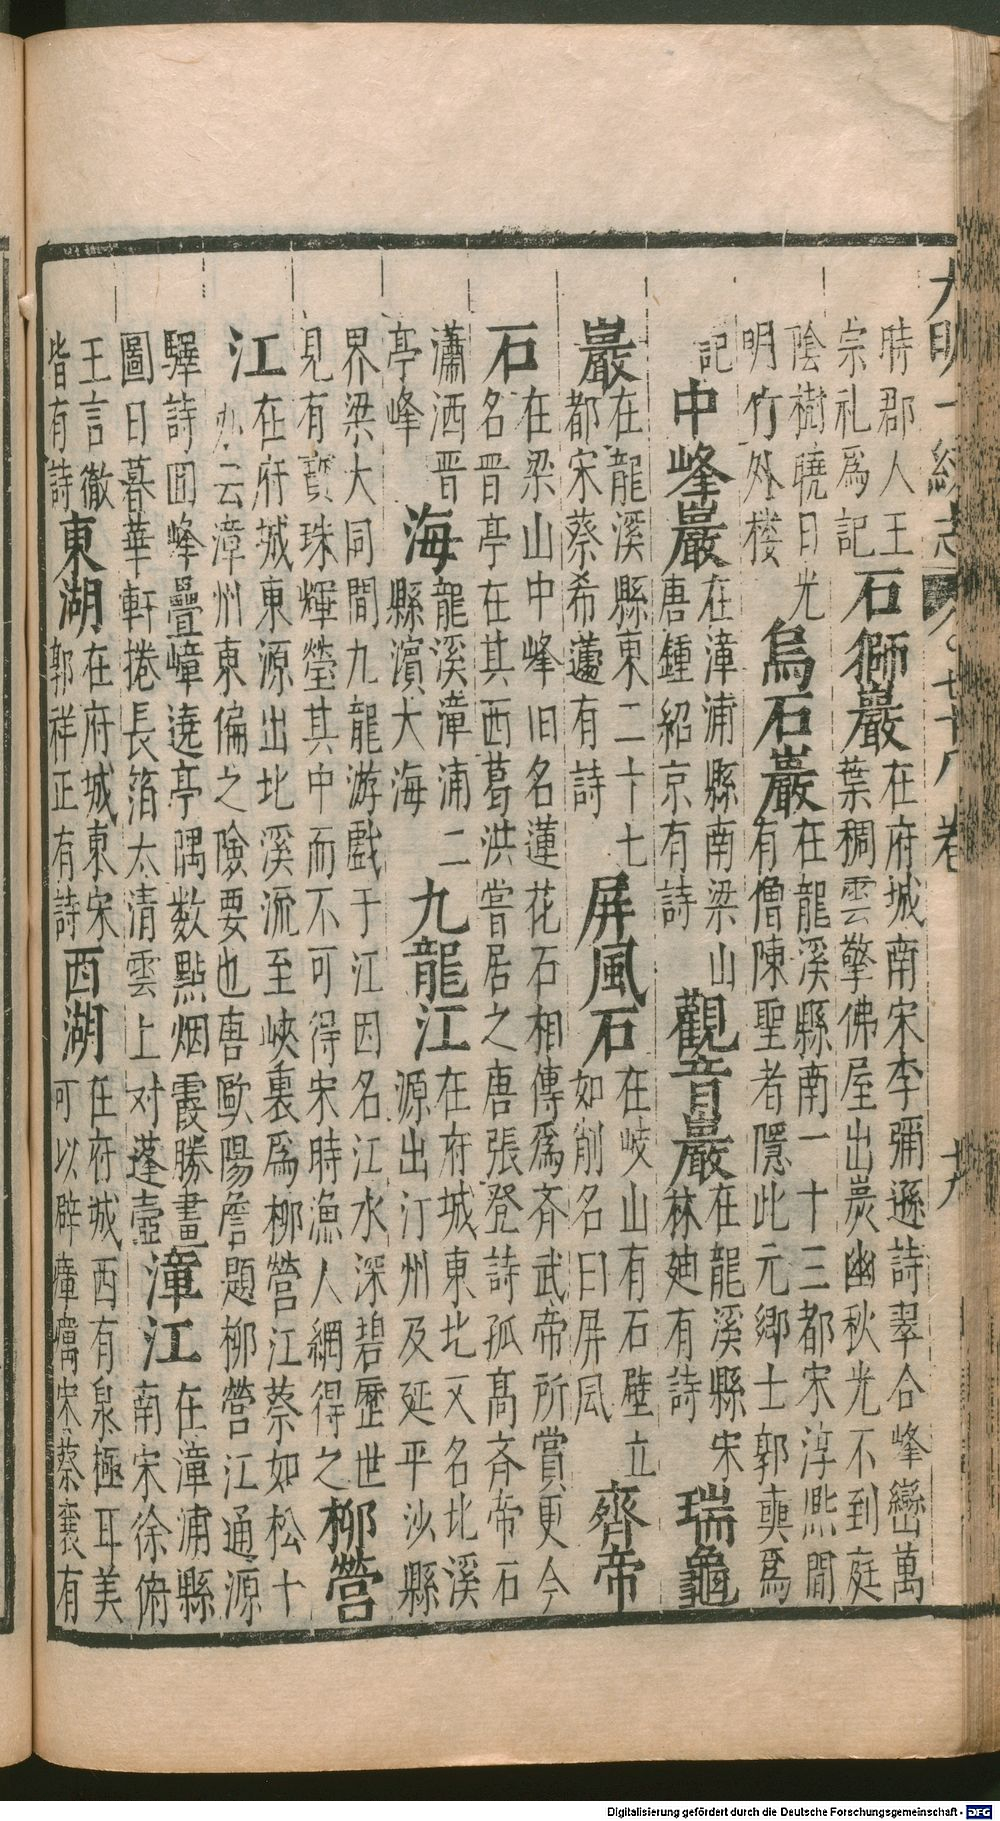 大明一統志 卷之七十八卷 十九
時郡人王
宗礼爲記
石獅巖
在府城南宋李彌遜詩翠合峰巒萬
葉稠雲擎佛屋出炭幽秋光不到庭
陰樹曉日光
明竹外楼
烏石巖
在龍溪縣南一十三都宋淳熈間
有僧陳聖者隱此元鄉士郭奭爲
記
中峰巖
在漳浦縣南梁山
唐鍾紹京有詩
觀音巖
在龍溪縣宋
林廸有詩
瑞龜
巖
在龍溪縣東二十七
都宋蔡希蘧有詩
屏風石
在岐山有石壁立
如削名曰屏風
齊帝
石
在梁山中峰旧名蓮花石相傳爲斉武帝所賞更今
名晋亭在其西葛洪嘗居之唐張登詩孤髙斉帝石
瀟洒晋
亭峰
海
龍溪漳浦二
縣濵大海
九龍江
在府城東北又名北溪
源出汀州及延平沙縣
界梁大同間九龍游戲于江因名江水深碧歷世
見有寳珠輝瑩其中而不可得宋時漁人網得之
柳營
江
在府城東源出北溪流至峽裏爲柳營江蔡如松十
办云漳州東偏之險要也唐歐陽詹題柳營江通源
驛詩囬峰疊嶂遶亭隅数點烟霞勝畫
圖日暮華軒捲長箔太清雲上对蓬壺
漳江
在漳浦縣
南宋徐俯
王言徹
皆有詩
東湖
在府城東宋
郭祥正有詩
西湖
在府城西有泉極耳美
可以辟瘴癘宋蔡襄有
Digitalisierung gefördert durch die Deutsche Forschungsgemeinschaft - DFG